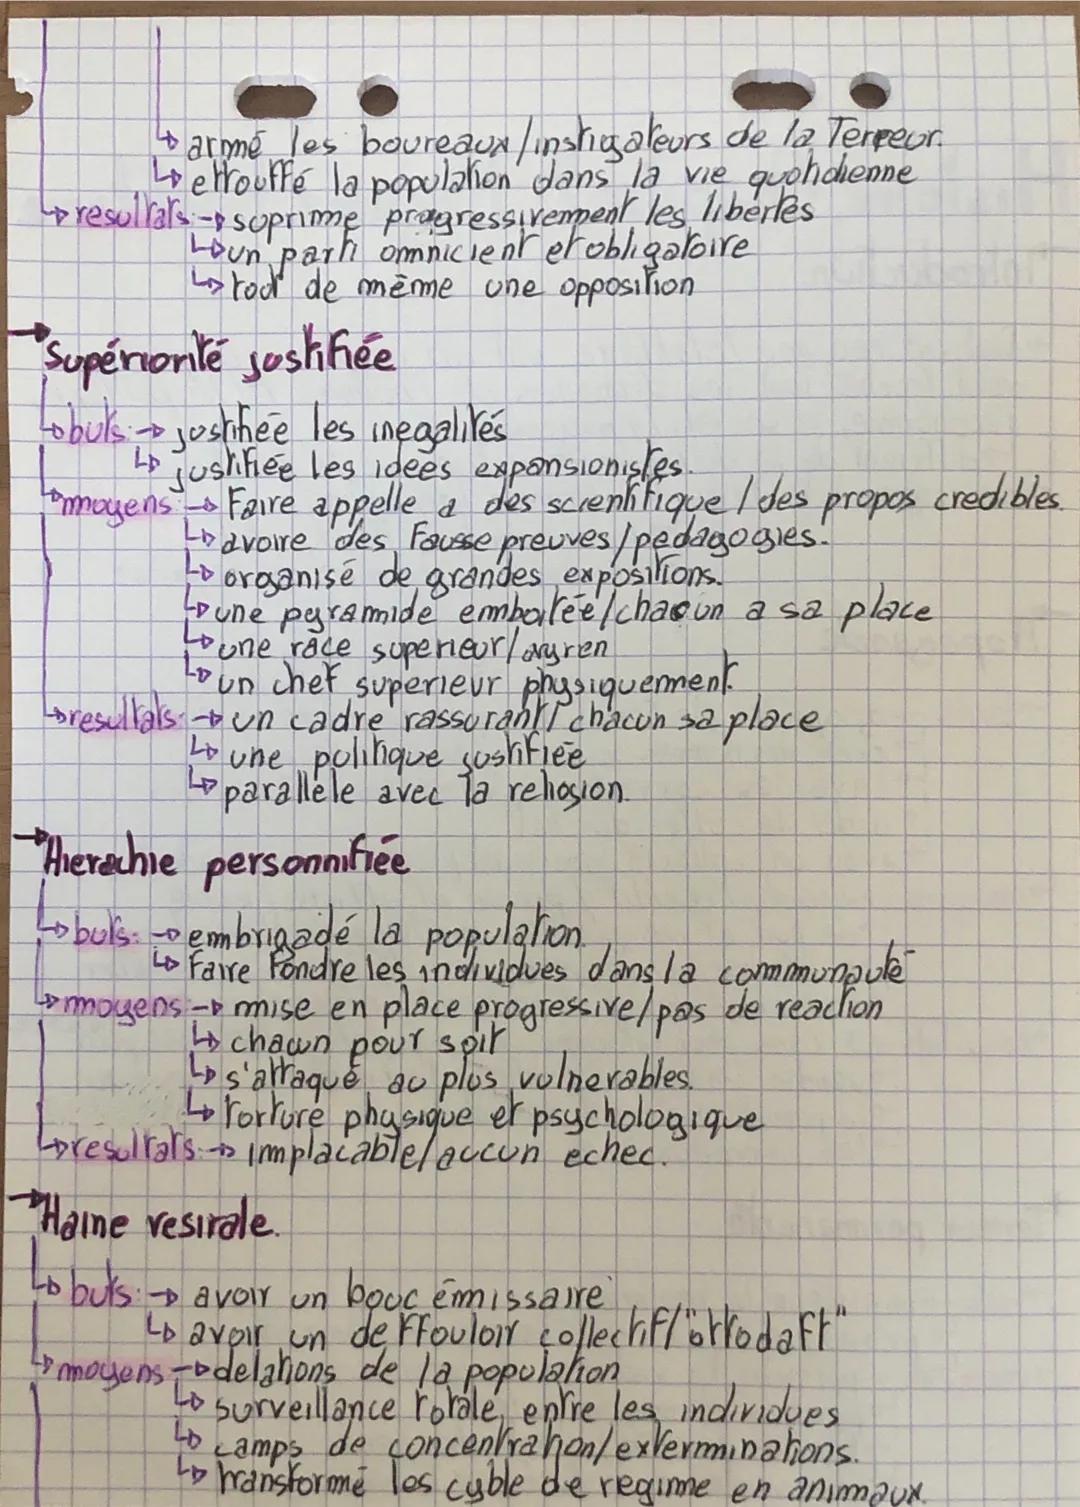 ↳ armé les boureaux/instigateurs de la Terreur.
↳ etrouffé la population dans la vie quotidienne
↳ resultats → suprime progressivement les libertés
↳ un parti omnicient et obligatoire
↳ tout de même une opposition
→ Supériorité justifiée
↳ buts: → justifiée les inegalités
↳ justifiée les idées expansionistes.
↳ moyens: → Faire appelle a des scientifique / des propos credibles.
↳ avoire des Fausse preuves/pedagogies.
↳ organisé de grandes expositions.
↳ une pyramide emboitée/chacun a sa place
↳ une race superieur/aryren
↳ un chef superieur physiquement.
↳ resultats: → un cadre rassurant/ chacun sa place
↳ une politique justifiée
↳ parallele avec la religion.
→ Hierachie personnifiée
↳ buts: → embrigadé la population
↳ Faire Fondre les individues dans la communauté
↳ moyens: → mise en place progressive/pas de reaction
↳ chacun pour soit
↳ s'attaqué au plus vulnerables.
↳ torture physique et psychologique
↳ resultats: → implacable/aucun echec.
→ Haine
↳ buts: → avoir un bouc émissaire
↳ avoir un deffouloir collectif/
↳ moyens → delations de la population
↳ surveillance totale, entre les individues
↳ camps de concentration/exterminations.
↳ transformé les cyble de regime en animaux.